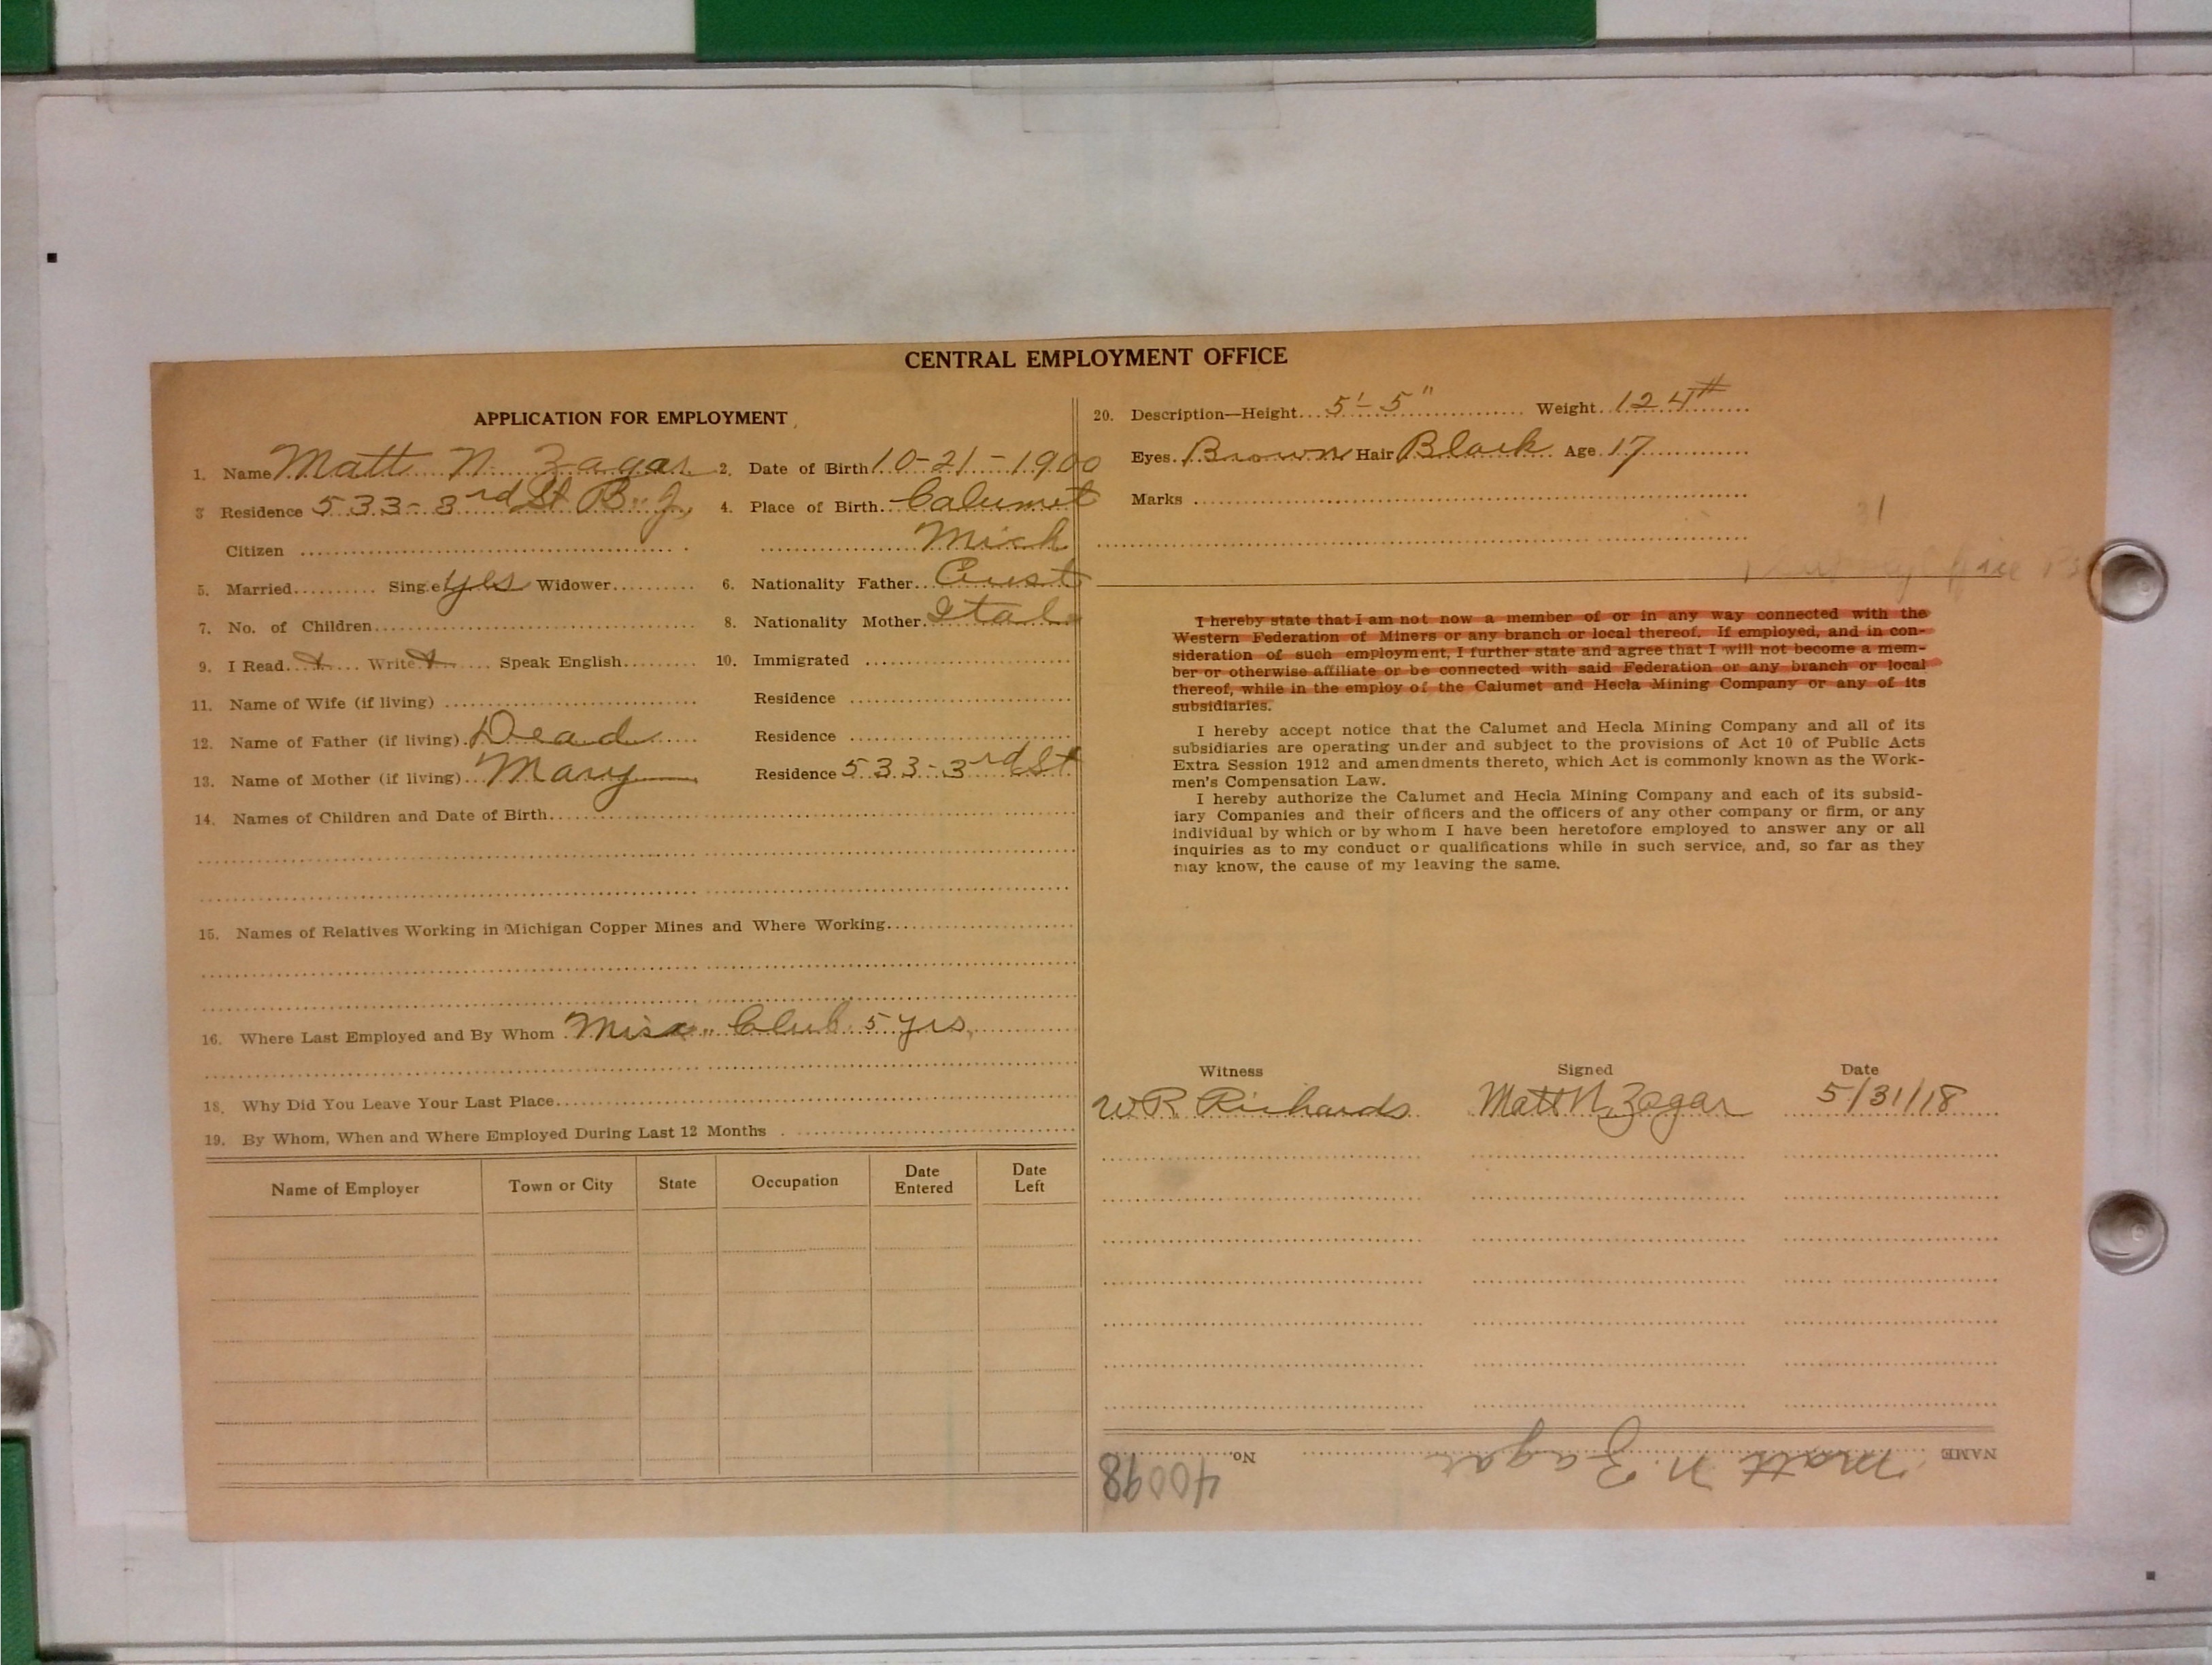 CENTRAL EMPLOYMENT OFFICE
APPLICATION FOR EMPLOYMENT
1. Name Matt N. Zagar 2. Date of Birth 10-21-1900
3 Residence 533-3rd St B.J. 4. Place of Birth Calumet
Citizen Mich
5. Married Single yes Widower 6. Nationality Father Aust
7. No. of Children 8. Nationality Mother Ital
9. I Read Write Speak English 10. Immigrated
11. Name of Wife (if living) Residence
12. Name of Father (if living) Dead Residence
13. Name of Mother (if living) Mary Residence 533-3rd St
14. Names of Children and Date of Birth
15. Names of Relatives Working in Michigan Copper Mines and Where Working
16. Where Last Employed and By Whom Misc. Club 5 yrs,
18. Why Did You Leave Your Last Place
19. By Whom, When and Where Employed During Last 12 Months
Name of Employer Town or City State Occupation Date Entered Date Left
20. Description—Height 5'-5" Weight 124#
Eyes Brown Hair Black Age 17
Marks
31
Office
I hereby state that I am not now a member of or in any way connected with the
Western Federation of Miners or any branch or local thereof. If employed, and in con-
sideration of such employment, I further state and agree that I will not become a mem-
ber or otherwise affiliate or be connected with said Federation or any branch or local
thereof, while in the employ of the Calumet and Hecla Mining Company or any of its
subsidiaries.
I hereby accept notice that the Calumet and Hecla Mining Company and all of its
subsidiaries are operating under and subject to the provisions of Act 10 of Public Acts
Extra Session 1912 and amendments thereto, which Act is commonly known as the Work-
men's Compensation Law.
I hereby authorize the Calumet and Hecla Mining Company and each of its subsid-
iary Companies and their officers and the officers of any other company or firm, or any
individual by which or by whom I have been heretofore employed to answer any or all
inquiries as to my conduct or qualifications while in such service, and, so far as they
may know, the cause of my leaving the same.
Witness Signed Date
W.R. Richards Matt N. Zagar 5/31/18
NAME Matt N. Zagar No. 40098